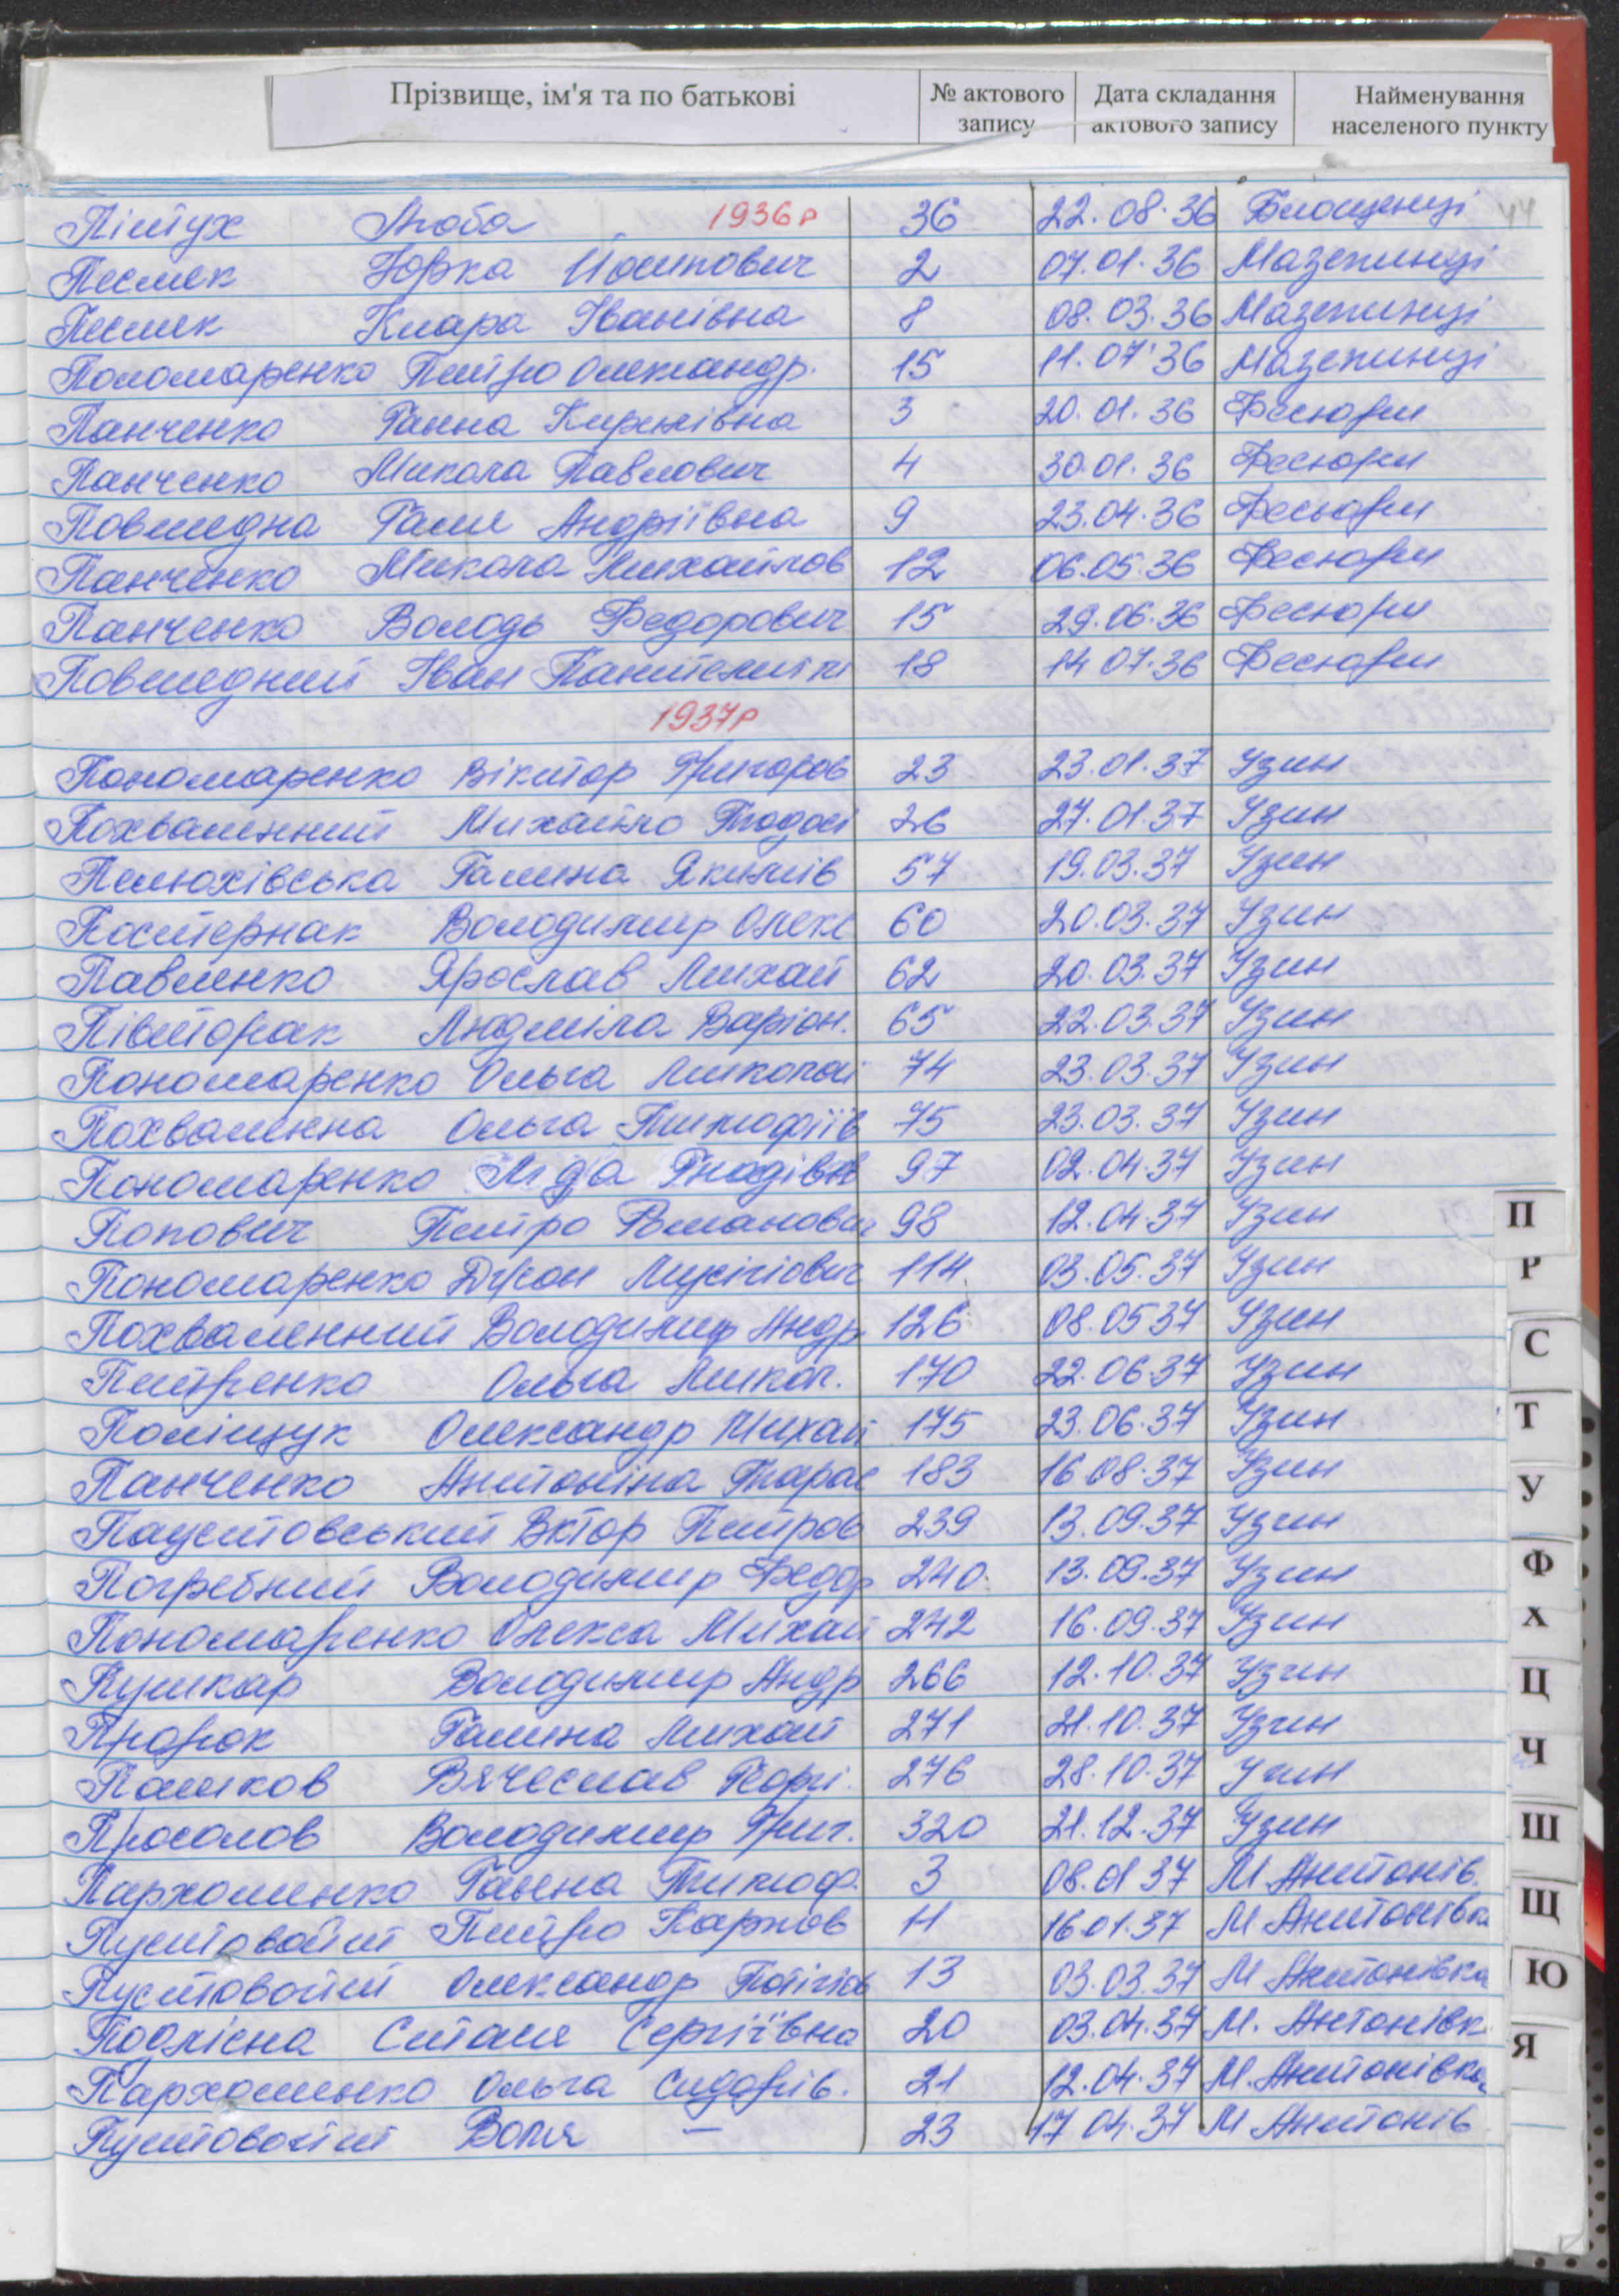 Прізвище, ім'я та по батькові № актового запису Дата складання актового запису Найменування населеного пункту
44
Пітух Люба 1936р 36 22.08.36 Блощинці
Песлек Юрка Йосипович 2 07.01.36 Мазепинці
Песлек Клара Іванівна 8 08.03.36 Мазепинці
Пономаренко Петро Олександр. 15 11.07.36 Мазепинці
Панченко Ганна Кирилівна 3 20.01.36 Фесюри
Панченко Микола Павлович 4 30.01.36 Фесюри
Повшедна Галя Андріївна 9 23.04.36 Фесюри
Панченко Микола Михайлов 12 06.05.36 Фесюри
Панченко Володь Федорович 15 29.06.36 Фесюри
Повшедний Іван 18 14 07.36 Фесюри
1937р
Пономаренко Віктор Григоров 23 23.01.37 Узин
Похваленний Михайло Тодосі 26 27.01.37 Узин
Пелюхівська Галина Якимів 57 19.03.37 Узин
Постернак Володимир Олекс 60 20.03.37 Узин
Павленко Ярослав Михай 62 20.03.37 Узин
Півторак Людміла Варіон. 65 22.03.37 Узин
Пономаренко Ольга Миколаї 74 23.03.37 Узин
Похваленна Ольга Тимофіїв 75 23.03.37 Узин
Пономаренко Ліда Гнадівн 97 02.04.37 Узин
Попович Петро Романович 98 12.04.37 Узин
Пономаренко Джон Мусійович 114 03.05.37 Узин
Похваленний Володимир Андр 126 08.05 37 Узин
Петренко Ольга Микол. 170 22.06.37 Узин
Поліщук Олександр Михай 175 23.06.37 Узин
Панченко Антоніна Тарас 183 16.08.37 Узин
Паустовський Вктор Петров 239 13.09.37 Узин
Погребний Володимир Федор 240 13.09.37 Узин
Пономаренко Олекса Михай 242 16.09.37 Узин
Пушкар Володимир Андр 266 12.10.37 Узин
Пророк Галина Михай 271 21.10.37 Узин
Пашков Вячеслав Георгі. 276 28.10.37 Узин
Просолов Володимир Григ. 320 21.12.37 Узин
Пархоменко Ганна Тимоф. 3 08.01 37 М.Антонів.
Пустовойт Петро Карпов 11 16.01.37 М Антонівка
Пустовойт Олександр 13 03.03.37 М Антонівка
Подлісна Сталя Сергіївна 20 03.04.37 М. Антонівк
Пархоменко Ольга Сидорів. 21 12.04.37 М.Антонівка
Пустовойт Воля — 23 17 04.37 М Антонів
П
Р
С
Т
У
Ф
Х
Ц
Ч
Ш
Щ
Ю
Я